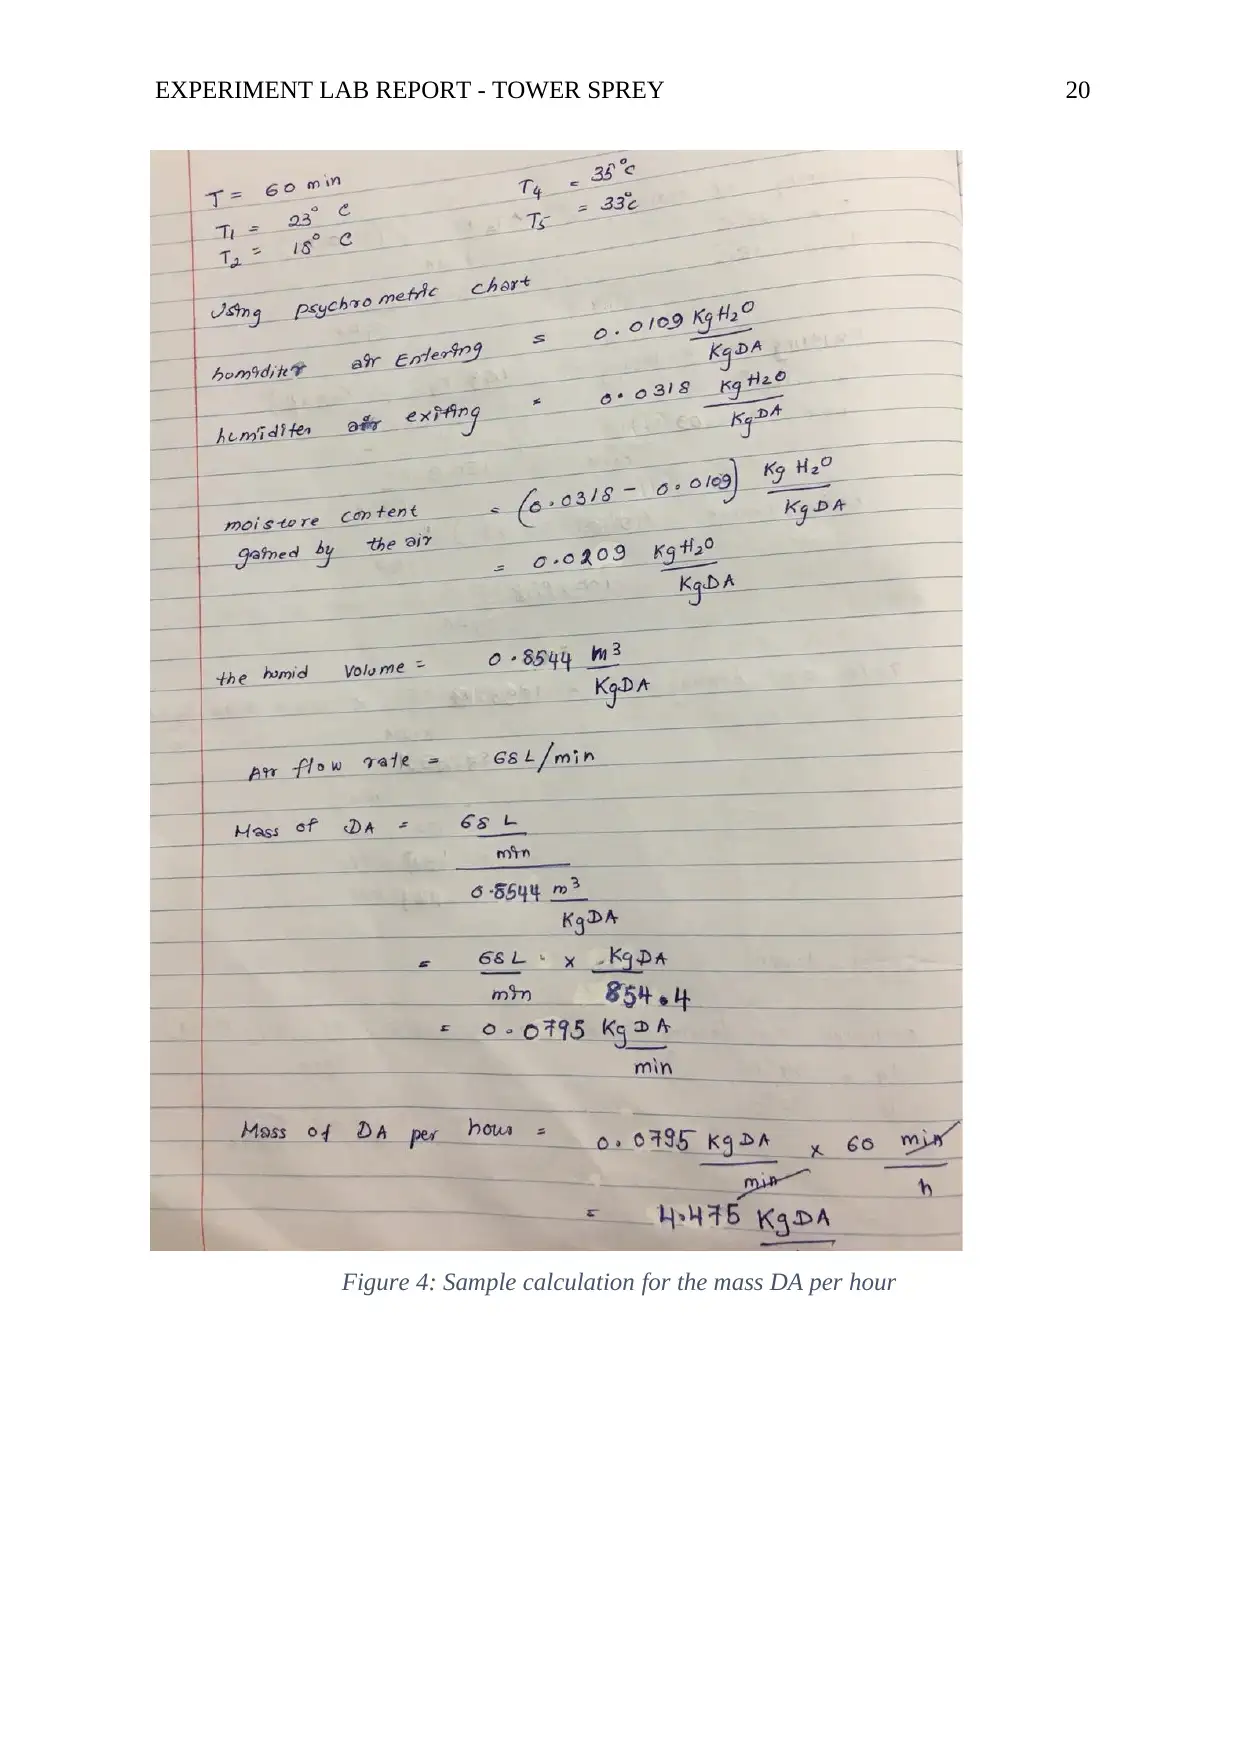 EXPERIMENT LAB REPORT - TOWER SPREY 20
T = 60 min
T4 = 35°C
T1 = 23° C
T5 = 33°C
T2 = 18° C
Using psychrometric chart
humiditer air Entering = 0.0109 KgH2O
KgDA
humiditer air exiting = 0.0318 Kg H2O
Kg DA
moisture content = (0.0318 - 0.0109) Kg H2O
KgDA
gained by the air
= 0.0209 KgH2O
KgDA
the humid Volume = 0.8544 m3
KgDA
Air flow rate = 68 L/min
Mass of DA = 68 L
min
0.8544 m3
KgDA
= 68 L x KgDA
min 854.4
= 0.0795 Kg DA
min
Mass of DA per hour = 0.0795 KgDA x 60 min
min h
= 4.475 KgDA
Figure 4: Sample calculation for the mass DA per hour